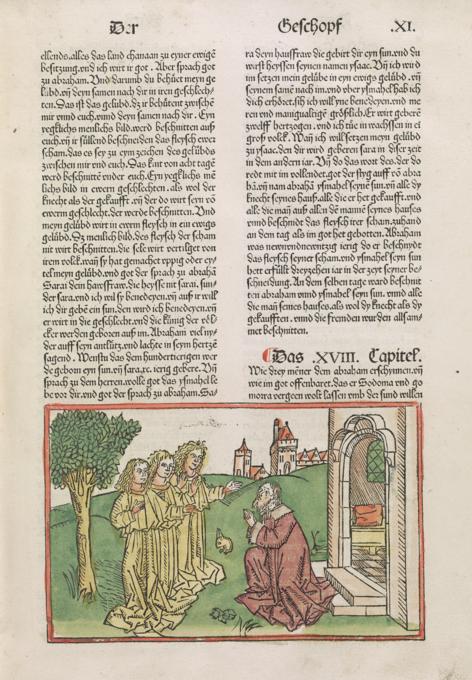 Der Geschopf .XI.
ellends.alles das land chanaan zu eyner ewigẽ
besitzung.vnd ich wirt ir got. Aber sprach got
zu abraham. Vnd darumb du behüet meyn ge
lübd.vñ deyn samen nach dir in iren geschlech-
ten. Das ist das gelübd.dz ir behütent zwischẽ
mir vnnd euch.vnnd deyn samen nach dir. Eyn
yegklichs menlichs bild.werd beschnitten auß
euch.vñ ir süllend beschneiden das fleysch ewer
scham.das es sey zu eym zeichen des gelübds
zwischen mir vnd euch. Das kint von acht tagẽ
werd beschnittẽ vnder euch. Eyn yegklichs mẽ
lichs bild in ewern geschlechten. als wol der
knecht als der gekaufft.vñ der do wirt seyn võ
ewerm geschlecht.der werde beschnitten. Vnd
meyn gelübd wirt in ewerm fleysch in ein ewigs
gelübd. Dz menlich bild.des fleysch der scham
nit wirt beschnitten.die sele wirt vertilget von
irem volck.wañ sy hat gemachet üppig oder ey-
tel meyn gelübd.vnd got der sprach zu abrahã
Sarai dein haussfraw.die heysse nit sarai. sun-
der sara.vnd ich wil sy benedeyen.vñ auß ir will
ich dir gebẽ ein sun.den wird ich benedeyen.vñ
er wirt in die geschlecht.vnd die künig der völ-
cker werden geboren auß im. Abraham viel ny-
der auff seyn antlütz.vnd lachte in seym hertzẽ
sagend. Wenstu das dem hundertierigen wer
de geborn eyn sun.vñ sara.xc. ierig gebere. Vñ
sprach zu dem herren.wolte got das ysmahel le
be vor dir.vnd got der sprach zu abraham.Sa-
ra deyn haussfraw die gebirt dir eyn sun.vnd du
wirst heyssen seynen namen ysaac. Vñ ich wird
im setzen mein gelübde in eyn ewigs gelübd. vñ
seynem samẽ nach im.vnd über ysmahel hab ich
dich erhöret.sih ich wil yne benedeyen.vnd me
ren vnd manigualtigẽ gröslich. Er wirt geberẽ
zwelff hertzogen. vnd ich tüe in wachssen in eĩ
groß volck. Wañ ich will setzen meyn gelübd
zu ysaac.den dir wird geberen sara in diser zeit
in dem andern iar. Vñ do das wort des.der do
redt mit im vollendet.got der steyg auff võ abra
hã.vñ nam abraham ysmahel seynẽ sun.vñ alle dy
knecht seynes hauß.alle die er het gekaufft.vnd
alle die mañ auß allen dẽ mannẽ seynes hauses
vnnd beschnidt das fleysch irer scham.zuhand
an dem tag als im got het gebotten. Abraham
was newnvndnewntzig ierig do er beschnydt
das fleysch seyner scham.vnd ysmahel seyn sun
hett erfüllt dreyzehen iar in der zeyt seyner be-
schneidung. An dem selben tage ward beschnit
ten abraham vnnd ysmahel seyn sun. vnnd alle
die mañ seines hauses.als wol dy knecht als dy
gekaufften. vnnd die fremden wurden allsam-
met beschnitten.
Das .XVIII. Capitel.
Wie drey mẽner dem abraham erschynnen.vñ
wie im got offenbaret.das er Sodoma vnd go
morra vergeen wolt lassen vmb der sund willen